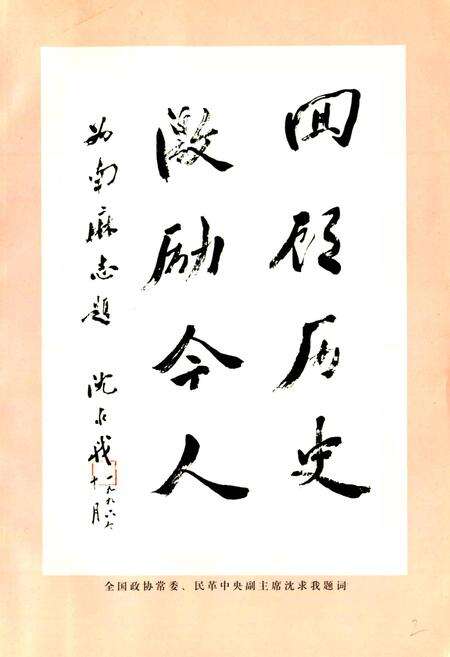 回顾历史
激励今人
为南麻志题
沈求我
一九九六年
十月
全国政协常委、民革中央副主席沈求我题词
2